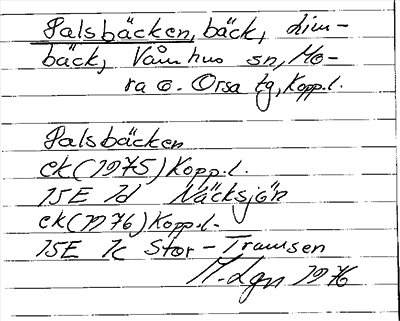 Palsbäcken, bäck, Lim-
bäck, Våmhus sn, Mo-
ra o. Orsa tg, Kopp.l.
Palsbäcken
ek (1975) Kopp.l.
15E 1d Näcksjön
ek (1976) Kopp.l.
15E 1c Stor-Tramsen
M. Lgn 1976